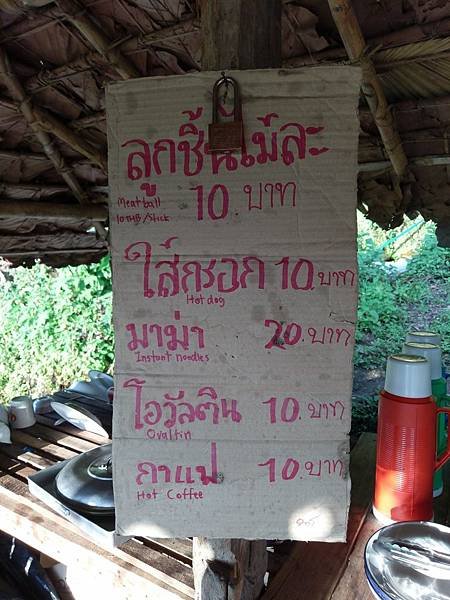 ลูกชิ้นไม้ละ
Meatball
10THB/Stick
10.บาท
ไส้กรอก 10.บาท
Hotdog
มาม่า 20.บาท
Instant noodles
โอวัลติน 10.บาท
Ovaltin
กาแฟ 10.บาท
Hot Coffee